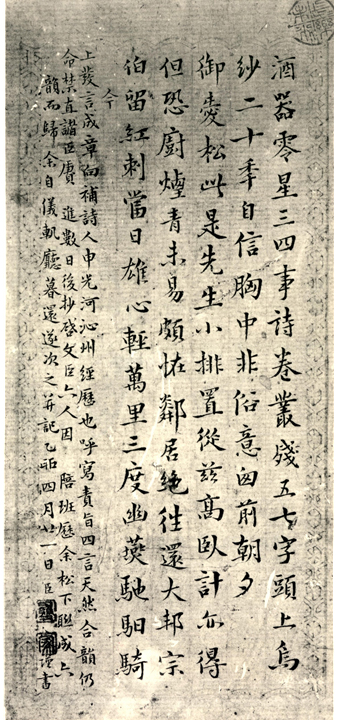 酒器零星三四事詩卷叢殘五七字頭上烏
紗二十年自信胸中非俗意囪前朝夕
御麥松此是先生小排置從玆高臥計亦得
但恐廚煙青未易頗怪鄰居絶徃還大邦宗
伯留紅刺當日雄心輕萬里三度幽燕馳馹騎
今
上發言成章向補詩人申光河沁州經歷也呼寫責旨四言天然合韻仍
命禁直諸臣賡進數日後抄啓文臣六人因陪班歷余松下聯成六
韻而歸余自儀軌廳暮還遂次之幷記乙卯四月廿一日臣書